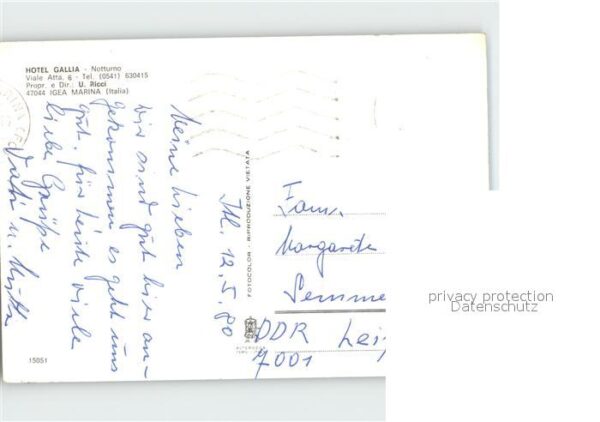 HOTEL GALLIA - Notturno
Viale Atta. 6 - Tel. (0541) 630415
Propr. e Dir.: U. Ricci
47044 IGEA MARINA (Italia)
It. 12.5.80
Meine Lieben
wir sind gut hier an-
gekommen es geht uns
gut. für heute viele
liebe Grüße
Vati u. Mutti
FOTOCOLOR - RIPRODUZIONE VIETATA
Fam.
Margarete
Semme
DDR Lei
7001
15051
privacy protection
Datenschutz